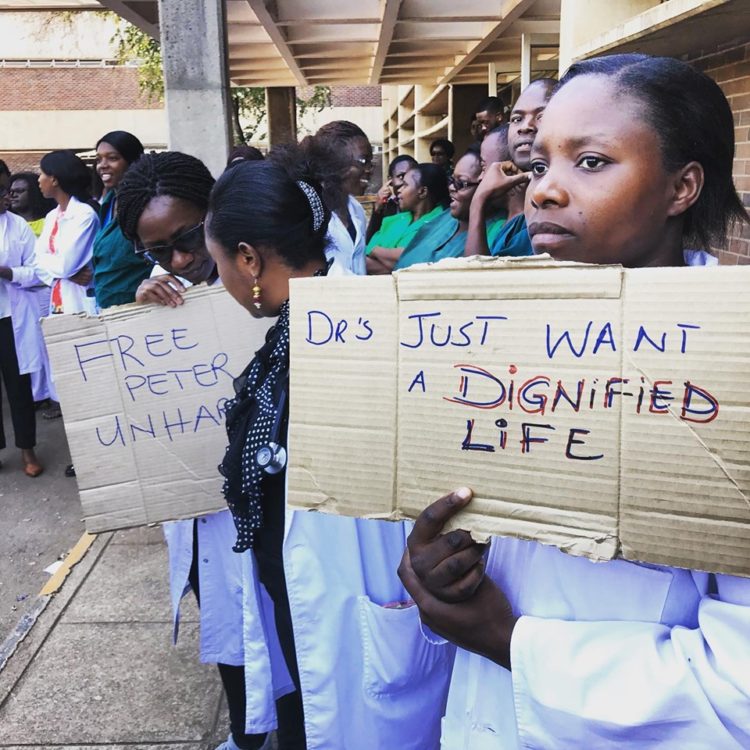 FREE
PETER
UNHAR
DR'S JUST WANT
A DIGNIFIED
LIFE